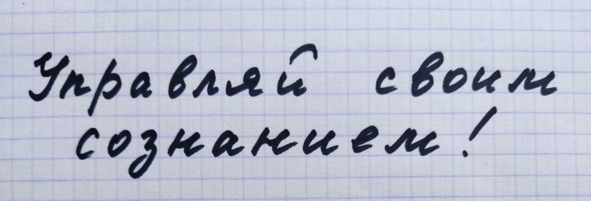 Управляй своим
сознанием!